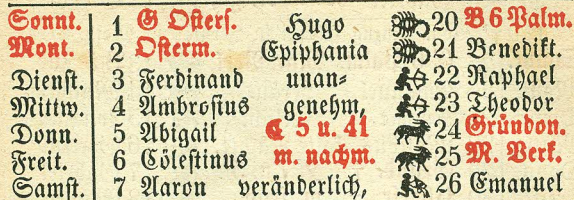 Sonnt. 1 G Osters. Hugo 20 B 6 Palm.
Mont. 2 Osterm. Epiphania 21 Benedikt.
Dienst. 3 Ferdinand unan= 22 Raphael
Mittw. 4 Ambrosius genehm, 23 Theodor
Donn. 5 Abigail ☾ 5 u. 41 24 Gründon.
Freit. 6 Cölestinus m. nachm. 25 M. Verk.
Samst. 7 Aaron veränderlich, 26 Emanuel